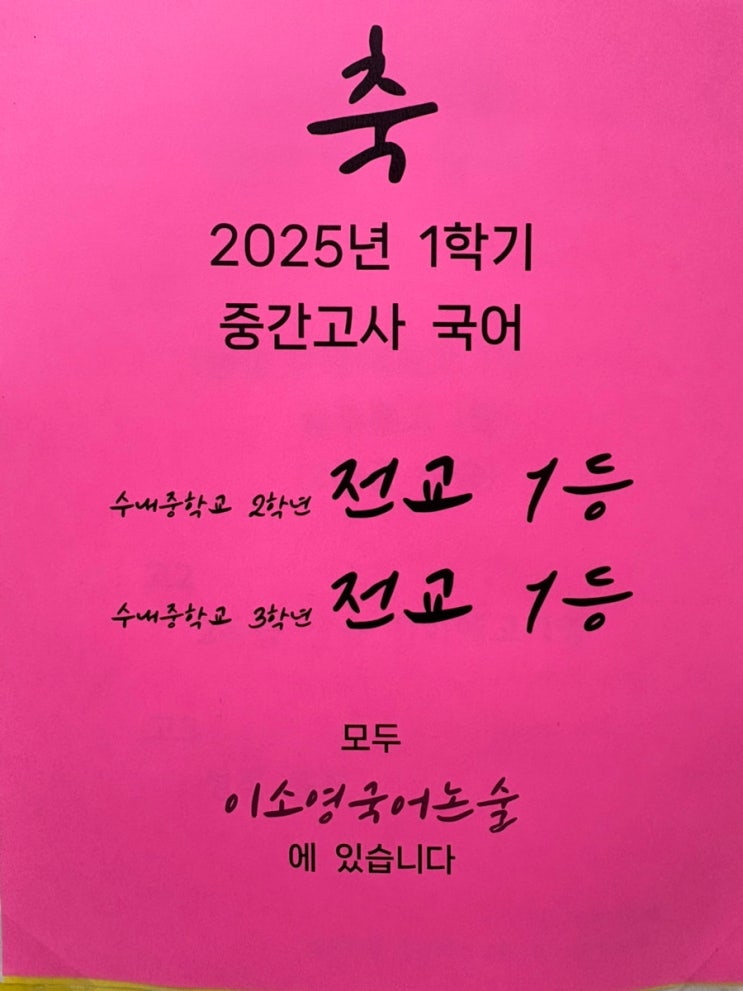 축
2025년 1학기
중간고사 국어
수내중학교 2학년 전교 1등
수내중학교 3학년 전교 1등
모두
이소영국어논술
에 있습니다